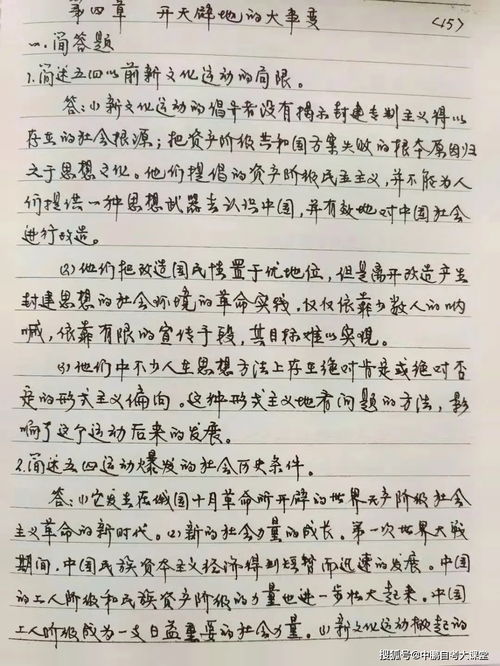 第四章 开天辟地的大事变
(15)
一.简答题
1.简述五四以前新文化运动的局限。
答:(1)新文化运动的倡导者没有揭示封建专制主义得以
存在的社会根源;把资产阶级共和国方案失败的根本原因归
之于思想文化。他们提倡的资产阶级民主主义,并不能为人
们提供一种思想武器去认识中国,并有效地对中国社会
进行改造。
(2)他们把改造国民性置于优地位,但是离开改造产生
封建思想的社会环境的革命实践,仅仅依靠少数人的呐
喊,依靠有限的宣传手段,其目标难以实现。
(3)他们中不少人在思想方法上存在绝对肯定或绝对否
定的形式主义偏向。这种形式主义地看问题的方法,影
响了这个运动后来的发展。
2.简述五四运动爆发的社会历史条件。
答:(1)它发生在俄国十月革命所开辟的世界无产阶级社会
主义革命的新时代。(2)新的社会力量的成长。第一次世界大战
期间,中国民族资本主义经济得到短暂而迅速的发展。中国
的工人阶级和民族资产阶级的力量也进一步壮大起来。中国
工人阶级成为一支日益重要的社会力量。(3)新文化运动掀起的
搜狐号@中鹏自考大课堂